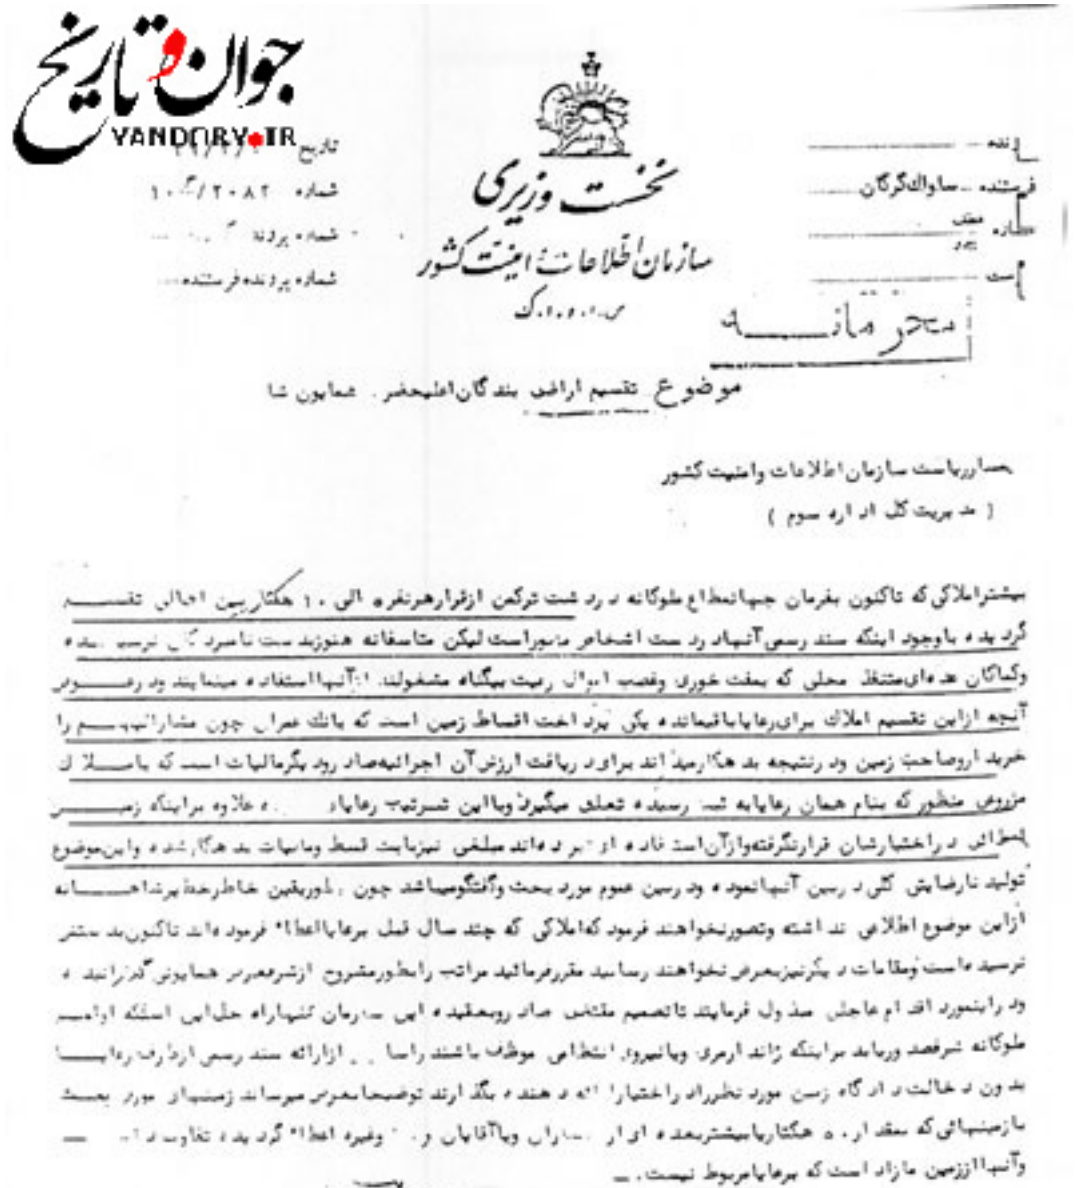 جوان و تاریخ
YANDORY.IR
تاریخ
شماره
شماره پرونده
شماره پرونده فرستنده
نخست وزیری
سازمان اطلاعات و امنیت کشور
فرستنده ساواک گرگان
محرمانه
موضوع تقسیم اراضی بندگان اعلیحضر همایون شا
ریاست سازمان اطلاعات وامنیت کشور
( مدیریت کل اداره سوم )
بیشتر املاکی که تاکنون بفرمان جهانمطاع ملوکانه در دشت ترکمن ازقرار هرنفر ۵ الی ۱۰ هکتار بین اهالی تقسیم
گردیده باوجود اینکه سند رسمی آنها در دست اشخاص مزبور است لیکن متاسفانه هنوز بدست نامبردگان نرسیده
وکماکان عده‌ای متنفذ محلی که بمفت خوری وغصب اموال رعیت بیگناه مشغولند از آنها استفاده مینمایند ودر عوض
آنچه ازاین تقسیم املاک برای رعایا باقیمانده یکی پرداخت اقساط زمین است که بانک عمران چون مشارالیهم را
خریدار وصاحب زمین ودرنتیجه بدهکار میداند برای دریافت ارزش آن اجرائیه صادر ودیگر مالیات است که باملاک
مزروعی منظور که بنام همان رعایا به ثبت رسیده تعلق میگیرد وبااین ترتیب رعایا علاوه براینکه زمین
اعطائی در اختیارشان قرارنگرفته وازآن استفاده ای نبرده‌اند مبلغی نیز بابت قسط ومالیات بدهکار شده واین موضوع
تولید نارضایتی کلی دربین آنها نموده ودربین عموم مورد بحث وگفتگو میباشد چون بطوریقین خاطر خطیر شاهانه
ازاین موضوع اطلاعی نداشته وتصور نخواهند فرمود که املاکی که چند سال قبل برعایا اعطاء فرموده‌اند تاکنون بدستشان
نرسیده است ومقامات دیگر نیز بعرض نخواهند رسانید مقرر فرمائید مراتب را بطور مشروح ازشرفعرض همایونی گذرانیده
ودراینمورد اقدام عاجلی مبذول فرمایند تاتصمیم مقتضی صادر وبعقیده این سازمان تنها راه حل این است که اوامر
ملوکانه شرفصدور یابد براینکه ژاندارمری ویانیروی انتظامی موظف باشند ازارائه سند رسمی ازطرف رعایا
بدون دخالت دادگاه زمین مورد نظر را در اختیار ارائه دهنده بگذارند توضیحا بعرض میرساند زمینهای مورد بحث
بازمینهائی که بمقدار ۵۰ هکتار یابیشتر بعده ای از ویاآقایان و وغیره اعطاء گردیده تفاوت دارد
وآنها اززمین مازاد است که برعایا مربوط نیست.